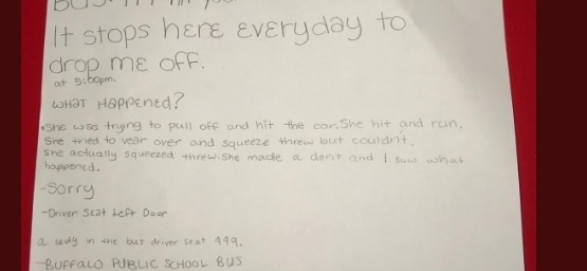 It stops here everyday to
drop me off.
at 5:00pm.
What Happened?
•She was trying to pull off and hit the car. She hit and run.
She tried to vear over and squeeze threw but couldn't.
She actually squeezed threw. She made a dent and I saw what
happened.
-Sorry
-Driver Seat Left Door
a lady in the bus driver seat 449.
-BUFFALO PUBLIC SCHOOL BUS